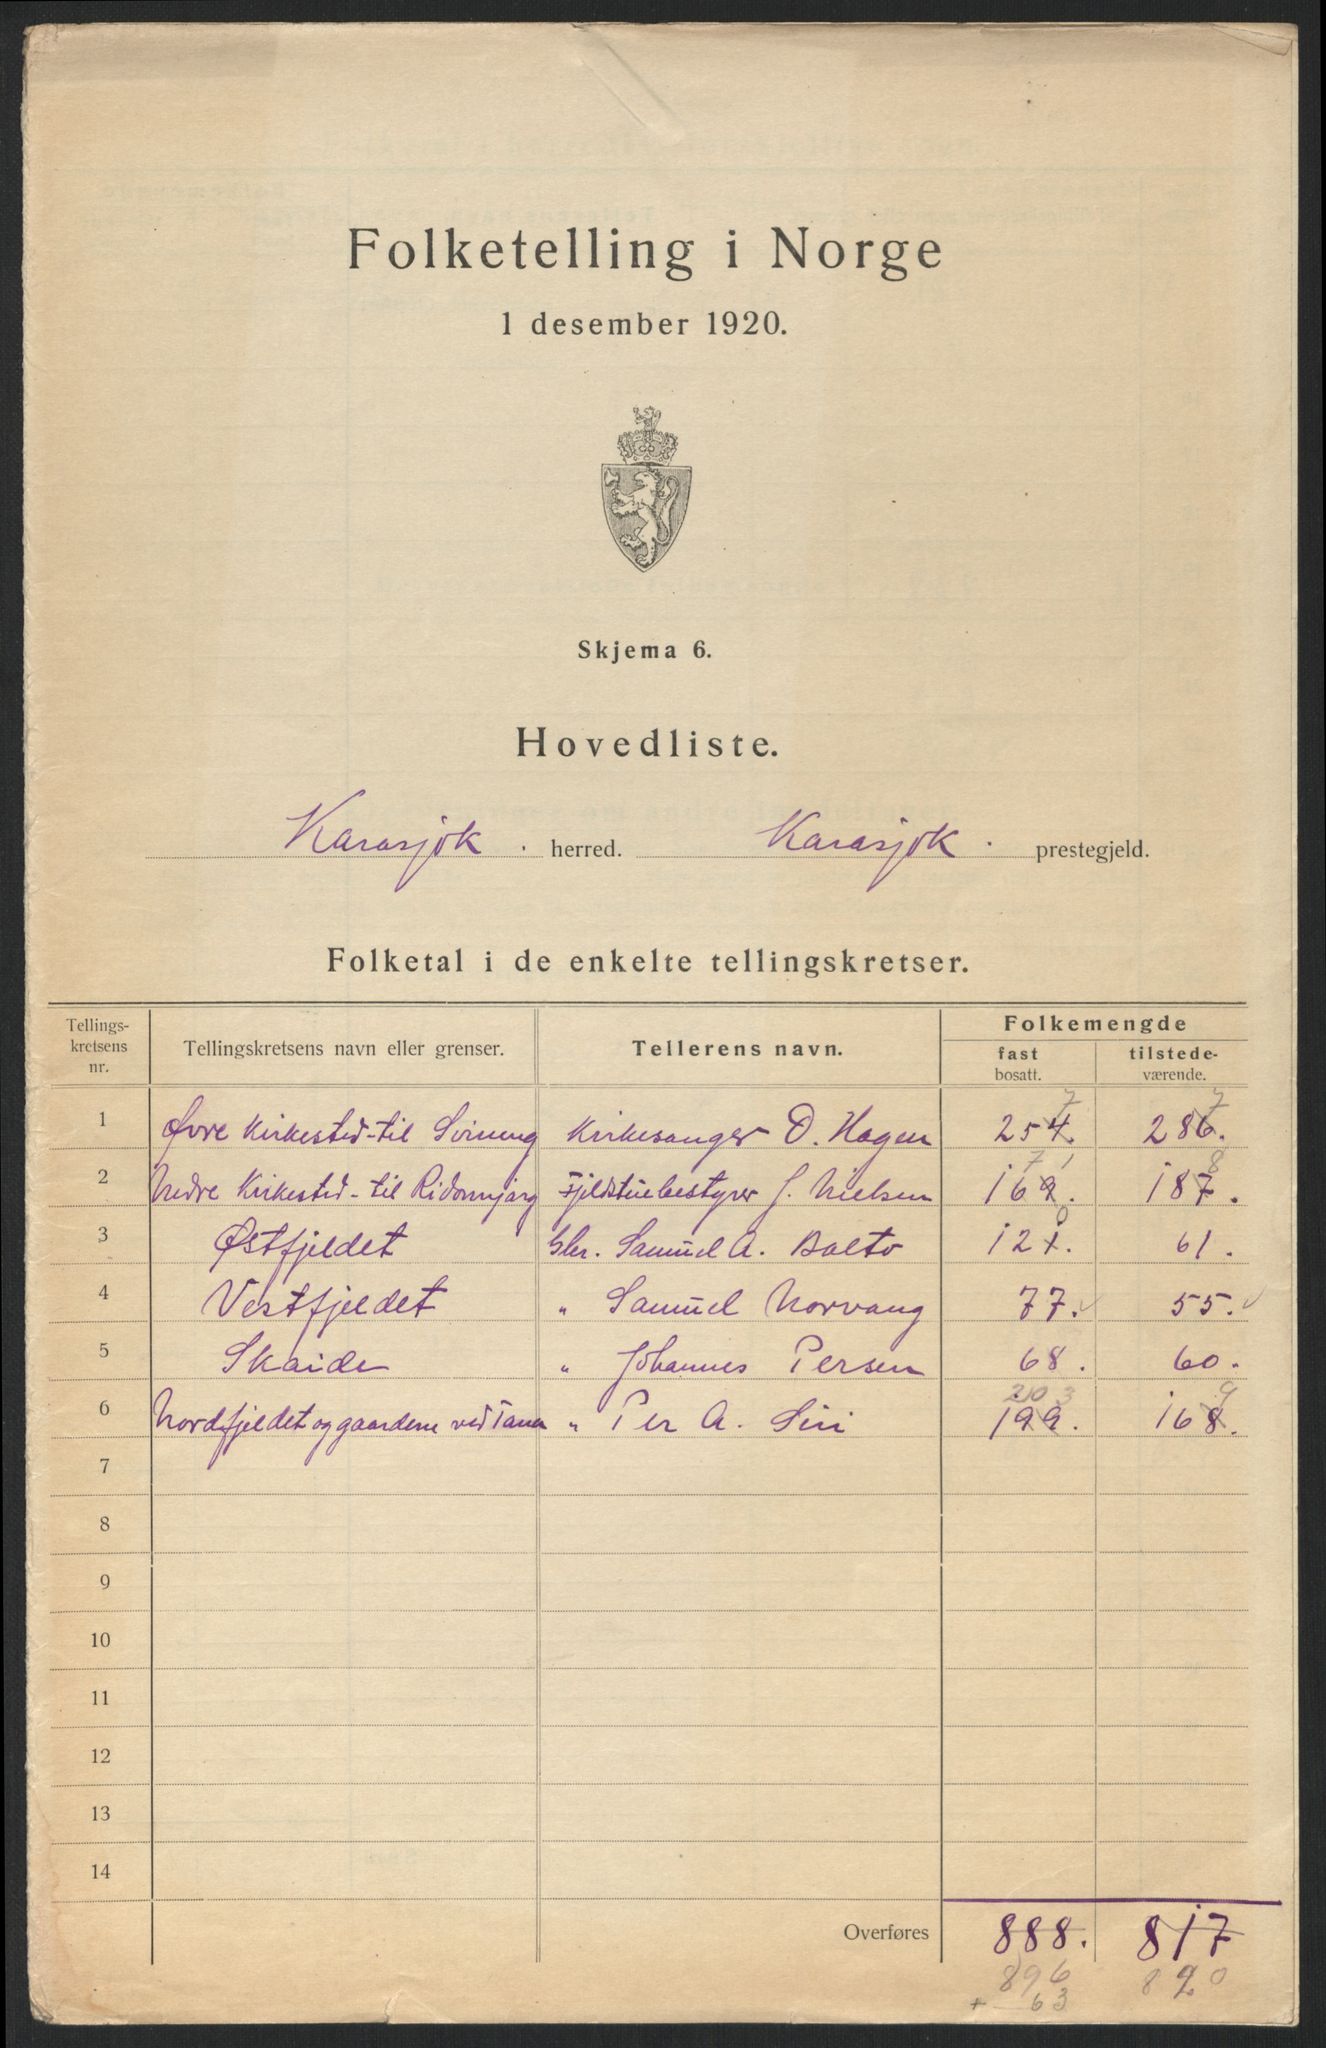 Folketelling i Norge
1 desember 1920.
Skjema 6.
Hovedliste.
Karasjok . herred. Karasjok . prestegjeld.
Folketal i de enkelte tellingskretser.
Tellings-
kretsens
nr.
Tellingskretsens navn eller grenser.
Tellerens navn.
Folkemengde
fast
bosatt.
tilstede-
værende.
7 7
1 Øvre Kirkested-til Svineng Kirkesanger O. Hagen 254. 286.
7 1 8
2 Nedre Kirkested-til Ridonnjarg Fjeldstuebestyrer J. Nielsen 169. 187.
0
3 Østfjeldet Glr. Samuel A. Balto 121. 61.
4 Vestfjeldet " Samuel Norvang 77. 55.
5 Skaide " Johannes Persen 68. 60.
203 9
6 Nordfjeldet og gaardene ved Tana " Per A. Siri 199. 168.
7
8
9
10
11
12
13
14
Overføres 888. 817
896 820
+ 63